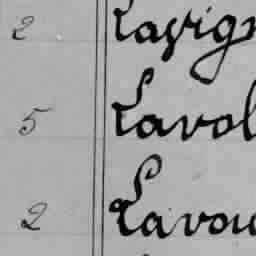 2 Lavign
5 Lavol
2 Lavou